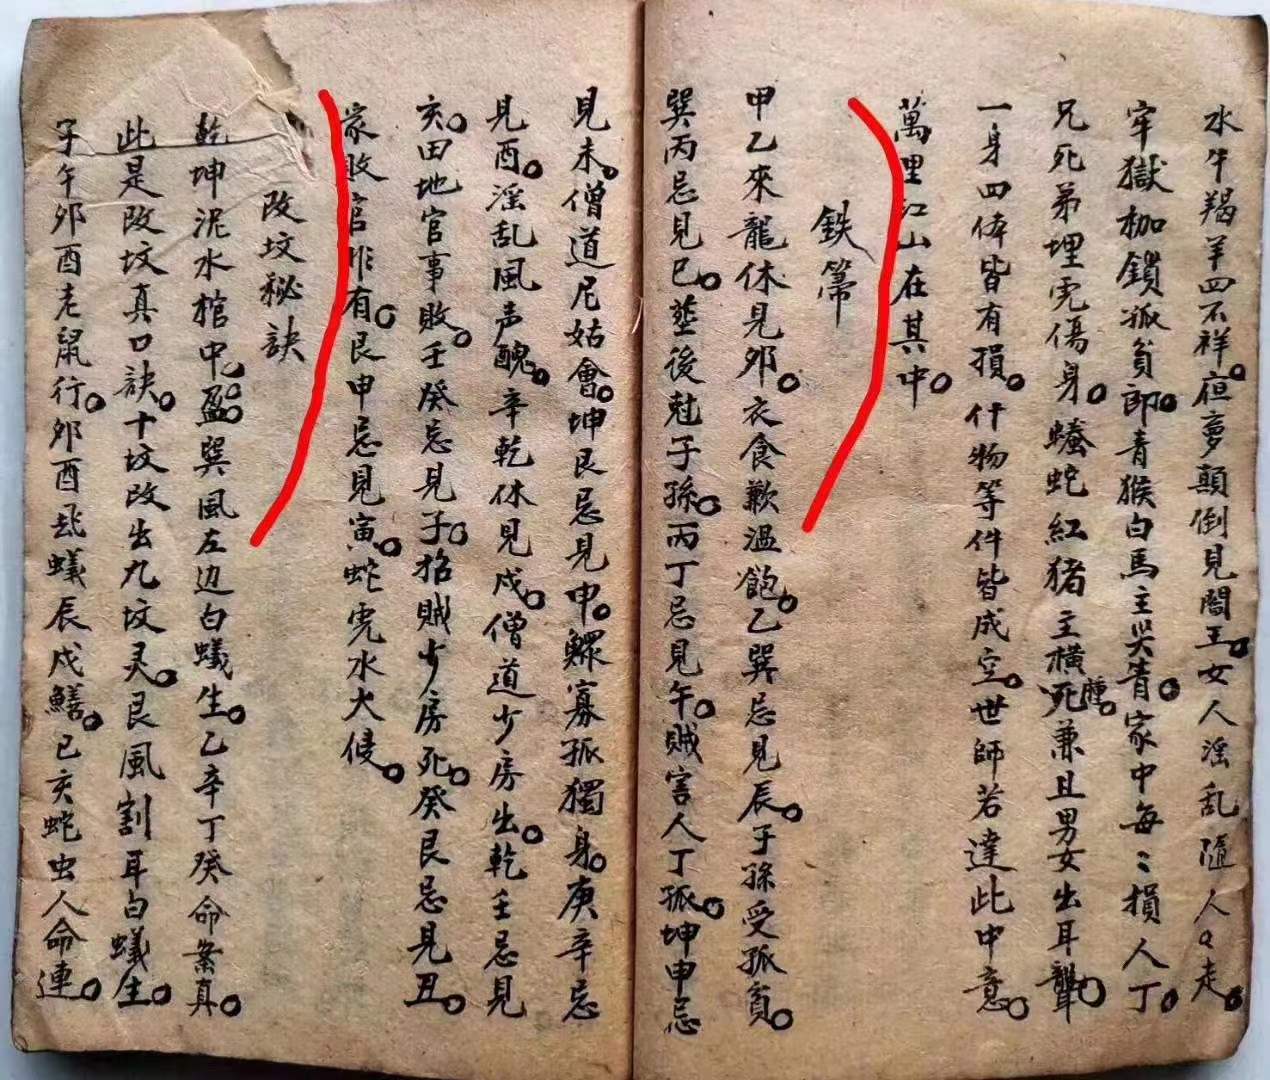 水牛羯羊四不祥。夜夢顛倒見閻王。女人淫乱隨人走。
牢獄枷鎖孤貧郎。青猴白馬主哭青。家中每〻損人丁。
兄死弟埋虎傷身。蟠蛇紅猪主横死腫。兼且男女出耳聾。
一身四体皆有損。什物等件皆成空。世師若達此中意。
萬里江山在其中。
鉄箒
甲乙來龍休見卯。衣食歉温飽。乙巽忌見辰。子孫受孤貧。
巽丙忌見巳。塟後尅子孫。丙丁忌見午。賊害人丁孤。坤申忌
見未。僧道尼姑會。坤艮忌見申。鰥寡孤獨身。庚辛忌
見酉。淫乱風声醜。辛乾休見戍。僧道少房出。乾壬忌見
亥。田地官事敗。壬癸忌見子。招賊少房死。癸艮忌見丑。
家敗官非有。艮申忌見寅。蛇虎水火侵。
改坟秘訣
乾坤泥水棺中盈。巽風左边白蟻生。乙辛丁癸命案真。
此是改坟真口訣。十坟改出九坟灵。艮風割耳白蟻生。
子午卯酉老鼠行。卯酉飛蟻辰戍鱔。巳亥蛇虫人命連。